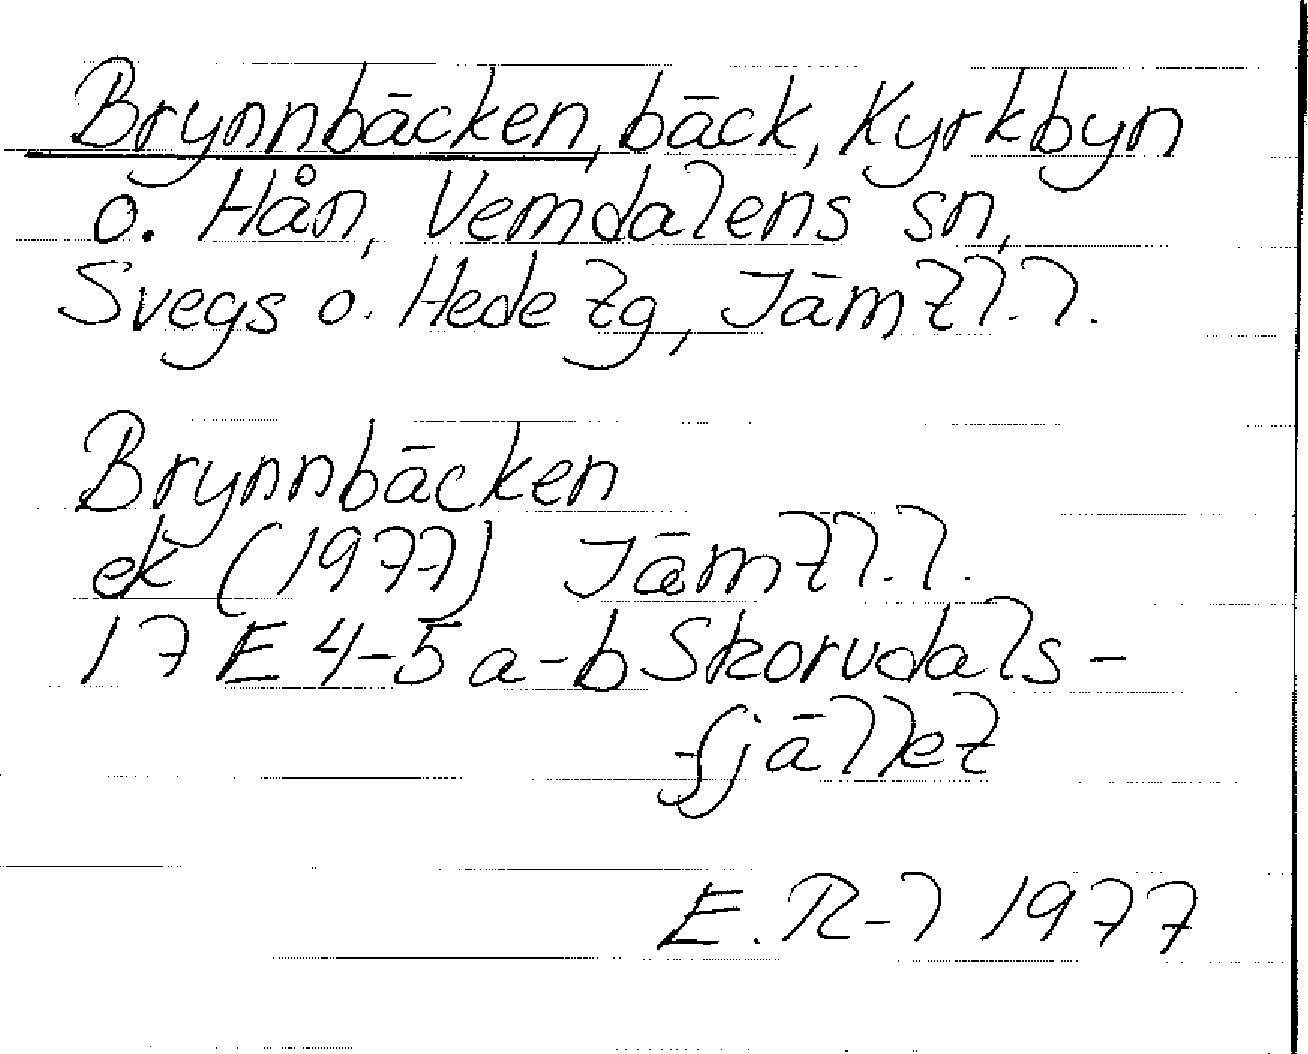 Brynnbäcken, bäck, Kyrkbyn
o. Hån, Vemdalens sn,
Svegs o. Hede tg, Jämtl.l.
Brynnbäcken
ek (1977) Jämtl.l.
17 E 4-5 a-b Skorvdals-
fjället
E. R-l 1977